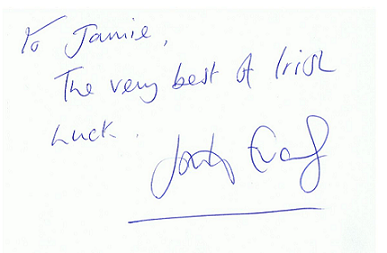 To Jamie,
The very best of Irish
Luck.